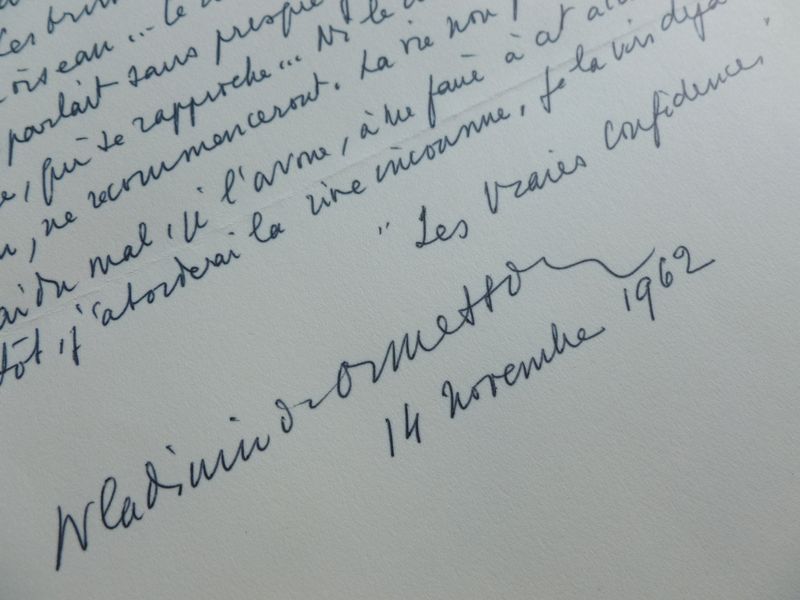 oiseau... le
parlait sans presque
, qui se rapproche... Ni le
, ne recommenceront. La vie non
ai du mal, je l'avoue, à me faire à cet
tôt j'aborderai la rive inconnue. Je la vois déjà
" Les Vraies Confidences,
Wladimir d'Ormesson
14 novembre 1962